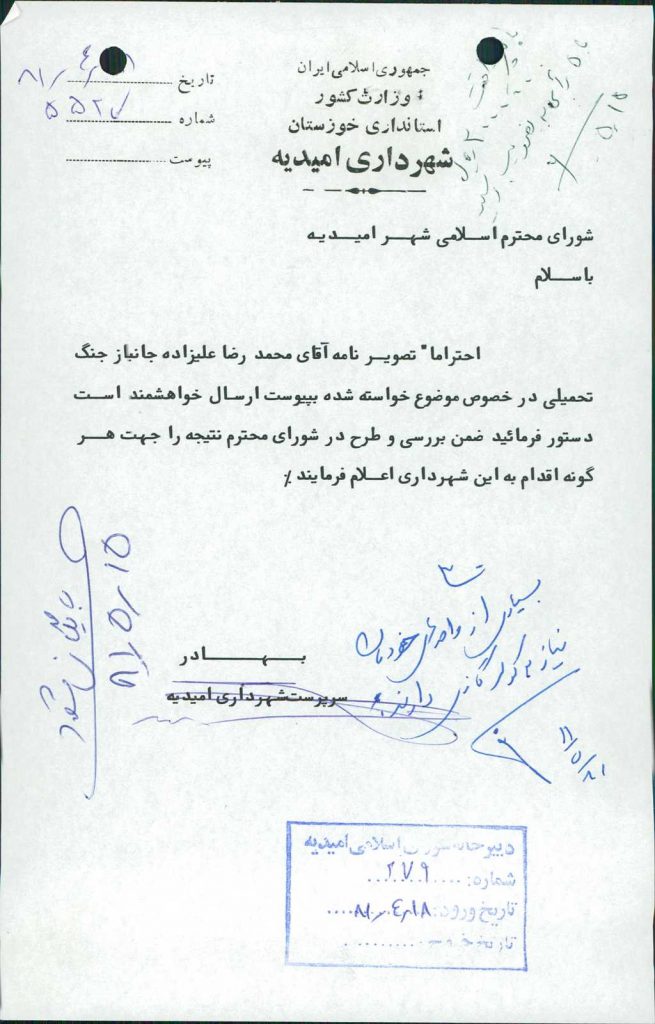 جمهوری اسلامی ایران
وزارت کشور
استانداری خوزستان
شهرداری امیدیه
تاریخ
شماره ۵۵۲۷
پیوست
شورای محترم اسلامی شهر امیدیه
باسلام
احتراما" تصویر نامه آقای محمد رضا علیزاده جانباز جنگ
تحمیلی در خصوص موضوع خواسته شده بپیوست ارسال خواهشمند است
دستور فرمائید ضمن بررسی و طرح در شورای محترم نتیجه را جهت هر
گونه اقدام به این شهرداری اعلام فرمایند ٪
بسیاری از واحدهای خودمان
نیاز به کولر گازی دارند
۸۱/۵/۱۵
بایگانی شود
بهادر
سرپرست شهرداری امیدیه
دبیرخانه شورای اسلامی امیدیه
شماره: ۲۷۹
تاریخ ورود: ۸۱/۴/۱۸
تاریخ